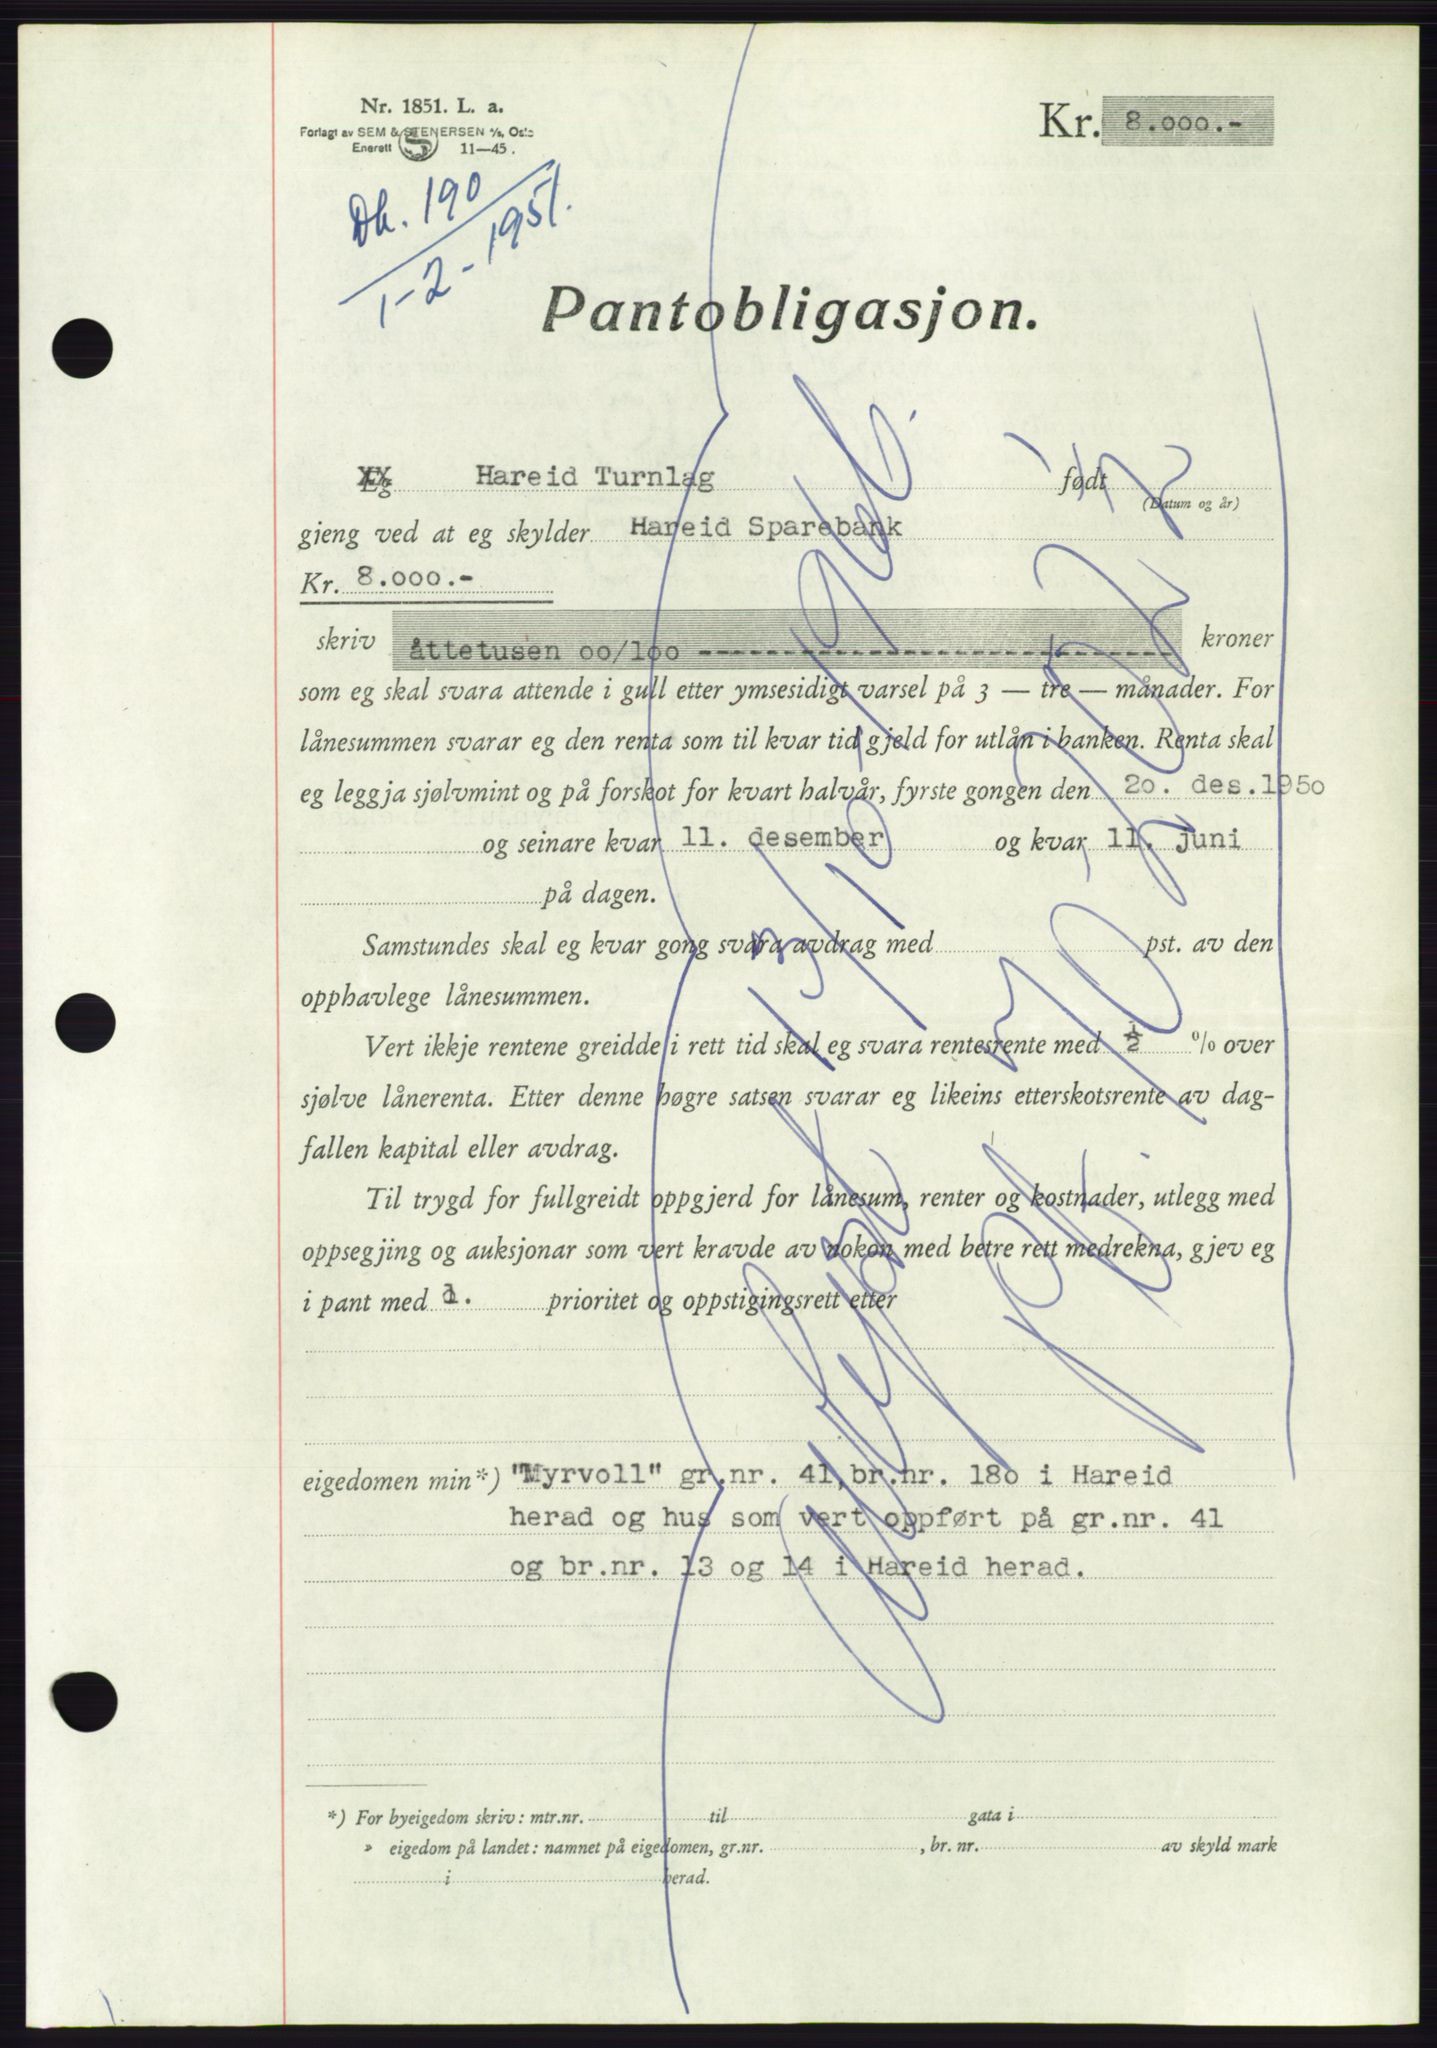 Nr. 1851. L. a.
Forlagt av SEM & STENERSEN A/s, Oslo
Enerett 11—45.
Kr. 8.000.-
Dk. 190
1-2-1951.
Pantobligasjon.
Eg Hareid Turnlag født
(Datum og år)
gjeng ved at eg skylder Hareid Sparebank
Kr. 8.000.-
skriv åttetusen oo/loo ---------------------- kroner
som eg skal svara attende i gull etter ymsesidigt varsel på 3 — tre — månader. For
lånesummen svarar eg den renta som til kvar tid gjeld for utlån i banken. Renta skal
eg leggja sjølvmint og på forskot for kvart halvår, fyrste gongen den 20. des.1950
og seinare kvar 11. desember og kvar 11. juni
på dagen.
Samstundes skal eg kvar gong svara avdrag med pst. av den
opphavlege lånesummen.
Vert ikkje rentene greidde i rett tid skal eg svara rentesrente med ½ % over
sjølve lånerenta. Etter denne høgre satsen svarar eg likeins etterskotsrente av dag-
fallen kapital eller avdrag.
Til trygd for fullgreidt oppgjerd for lånesum, renter og kostnader, utlegg med
oppsegjing og auksjonar som vert kravde av nokon med betre rett medrekna, gjev eg
i pant med 1. prioritet og oppstigingsrett etter
eigedomen min*) "Myrvoll" gr.nr. 41, br.nr. 180 i Hareid
herad og hus som vert oppført på gr.nr. 41
og br.nr. 13 og 14 i Hareid herad.
Avlyst 13/10 1966.
*) For byeigedom skriv: mtr.nr. til gata i
» eigedom på landet: namnet på eigedomen, gr.nr. , br. nr. av skyld mark
i herad.